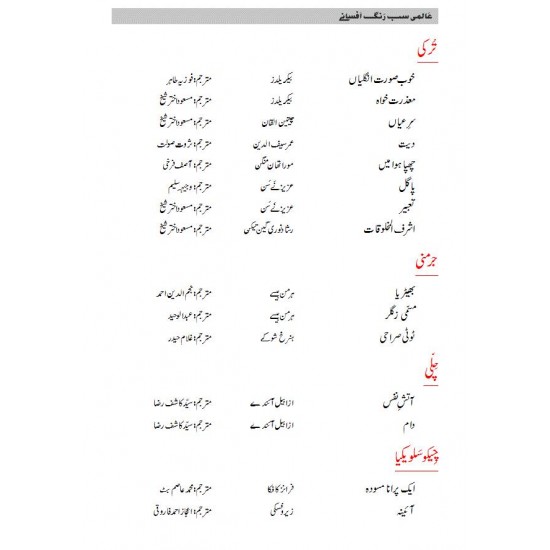 عالمی سب رنگ افسانے
تُرکی
خوب صورت انگلیاں بیکر یلدز مترجم: فوزیہ طاہر
معذرت خواہ بیکر یلدز مترجم: مسعود اختر شیخ
سرعیاں چیتین التان مترجم: مسعود اختر شیخ
دیت عمر سیف الدین مترجم: ثروت صولت
چھپا ہوا میں مورا تھان منگن مترجم: آصف فرخی
پاگل عزیز نے سن مترجم: وجیہہ سلیم
تعبیر عزیز نے سن مترجم: مسعود اختر شیخ
اشرف المخلوقات رشاد نوری گین تیکن مترجم: مسعود اختر شیخ
جرمنی
بھیڑیا ہرمن ہیسے مترجم: نجم الدین احمد
مسمّی زیگلر ہرمن ہیسے مترجم: عبدالوحید
ٹوٹی صراحی ہنرخ شوکے مترجم: غلام حیدر
چلّی
آتشِ نفس ازابیل آئندے مترجم: سیّد کاشف رضا
دام ازابیل آئندے مترجم: سیّد کاشف رضا
چیکوسلوویکیا
ایک پرانا مسودہ فرانز کافکا مترجم: محمد عاصم بٹ
آئینہ مترجم: اعجاز احمد فاروقی